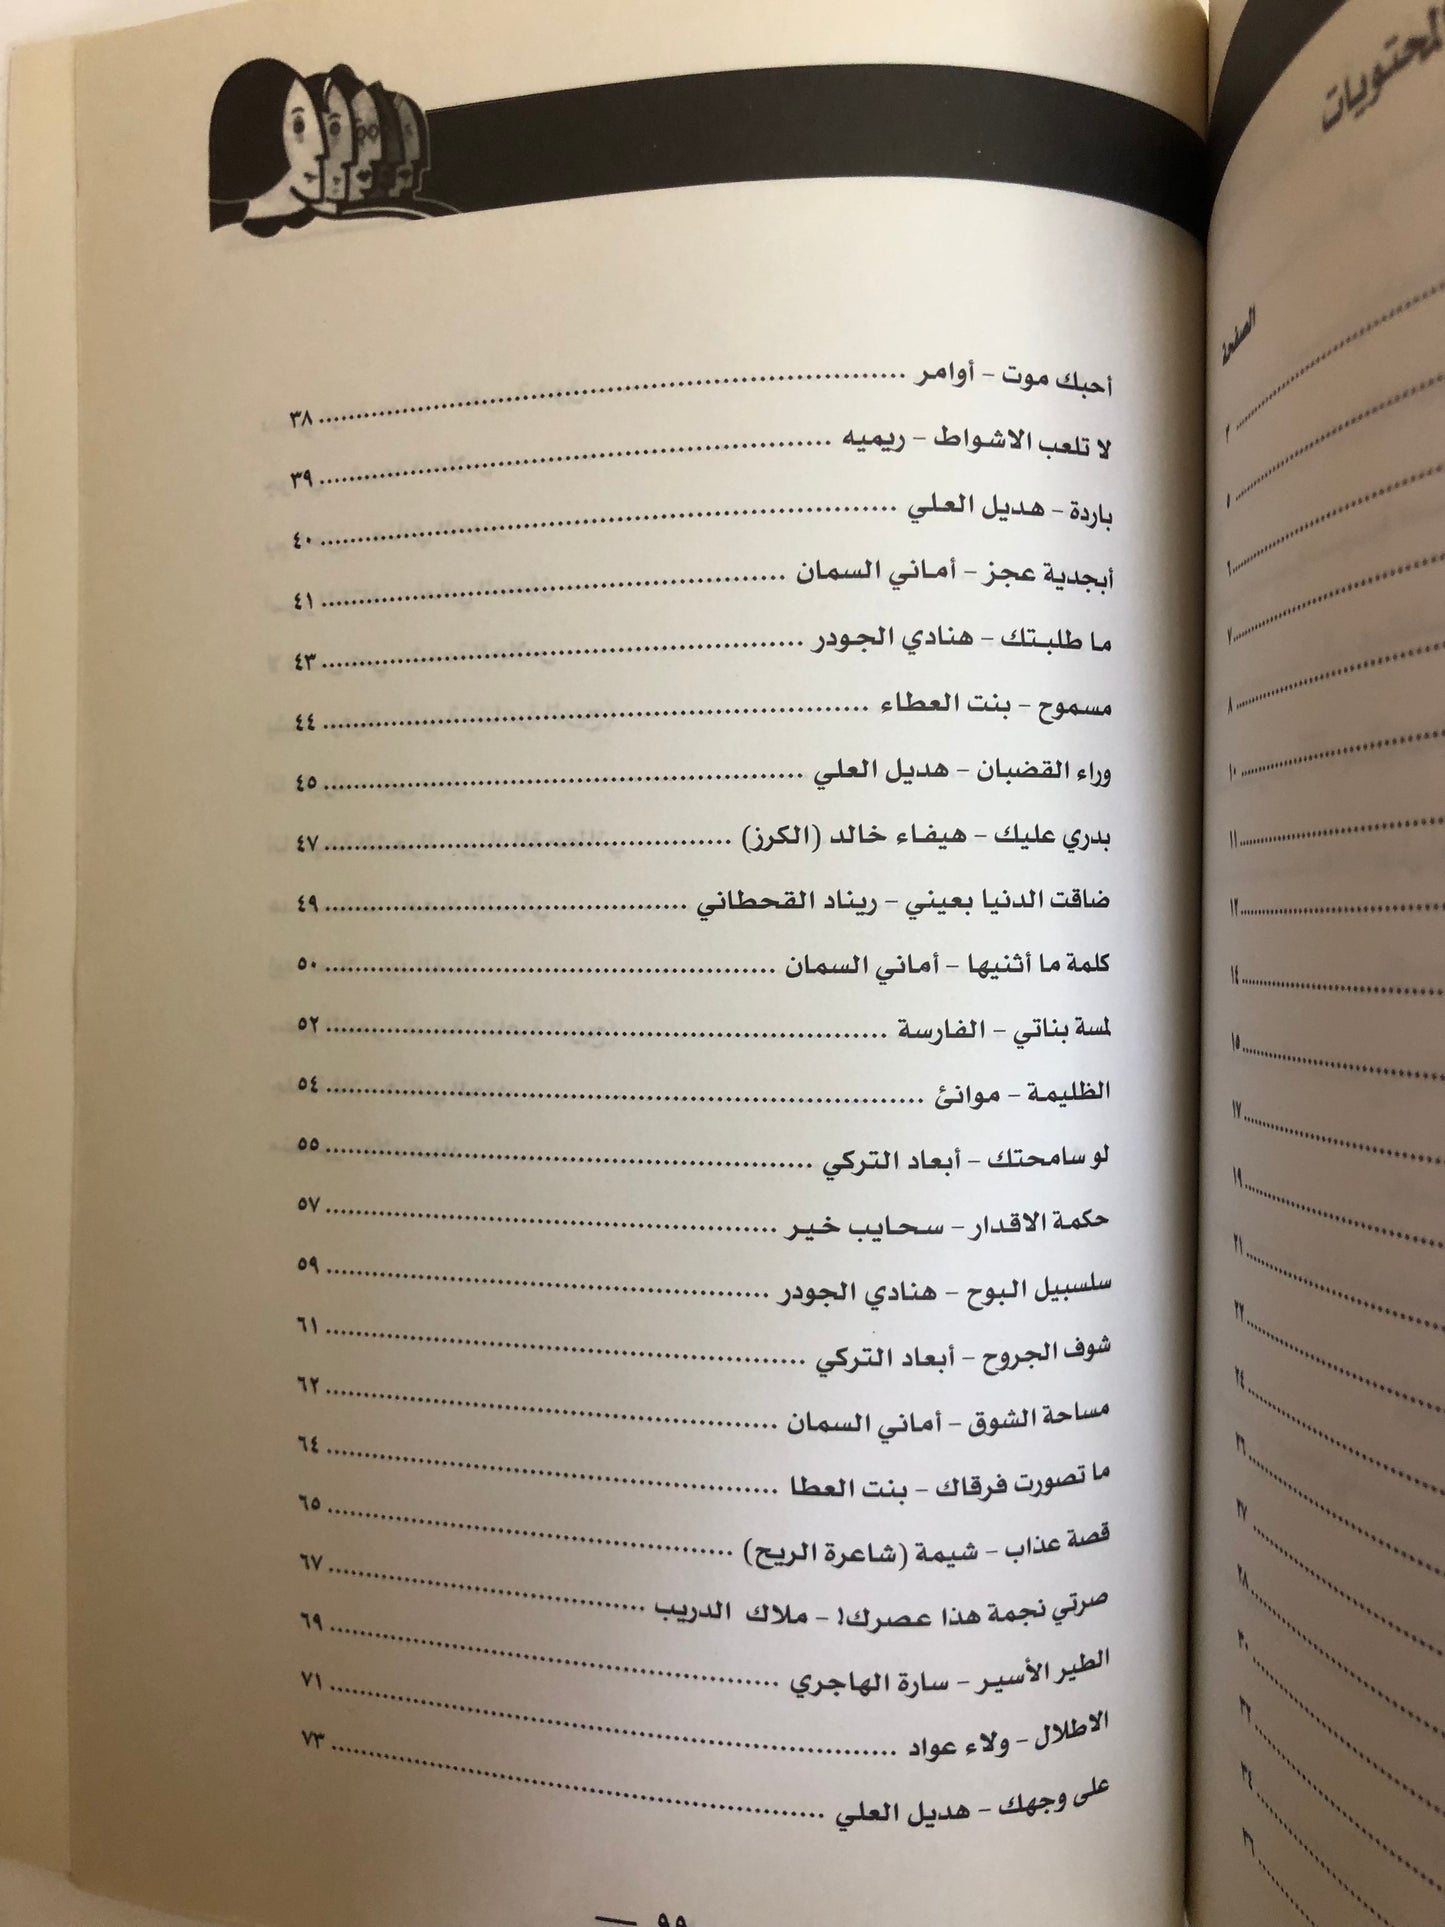 المحتويات
الصفحة
٢
٥
٦
٧
٨
١٠
١١
١٢
١٤
١٥
١٧
١٩
٢١
٢٢
٢٤
٢٦
٢٧
٢٨
٣٠
٣٢
٣٤
٣٦
أحبك موت - أوامر ........ ٣٨
لا تلعب الاشواط - ريميه ........ ٣٩
باردة - هديل العلي ........ ٤٠
أبجدية عجز - أماني السمان ........ ٤١
ما طلبتك - هنادي الجودر ........ ٤٣
مسموح - بنت العطاء ........ ٤٤
وراء القضبان - هديل العلي ........ ٤٥
بدري عليك - هيفاء خالد (الكرز) ........ ٤٧
ضاقت الدنيا بعيني - ريناد القحطاني ........ ٤٩
كلمة ما أثنيها - أماني السمان ........ ٥٠
لمسة بناتي - الفارسة ........ ٥٢
الظليمة - موانئ ........ ٥٤
لو سامحتك - أبعاد التركي ........ ٥٥
حكمة الاقدار - سحايب خير ........ ٥٧
سلسبيل البوح - هنادي الجودر ........ ٥٩
شوف الجروح - أبعاد التركي ........ ٦١
مساحة الشوق - أماني السمان ........ ٦٢
ما تصورت فرقاك - بنت العطا ........ ٦٤
قصة عذاب - شيمة (شاعرة الريح) ........ ٦٥
صرتي نجمة هذا عصرك! - ملاك الدريب ........ ٦٧
الطير الأسير - سارة الهاجري ........ ٦٩
الاطلال - ولاء عواد ........ ٧١
على وجهك - هديل العلي ........ ٧٣
٩٩ —